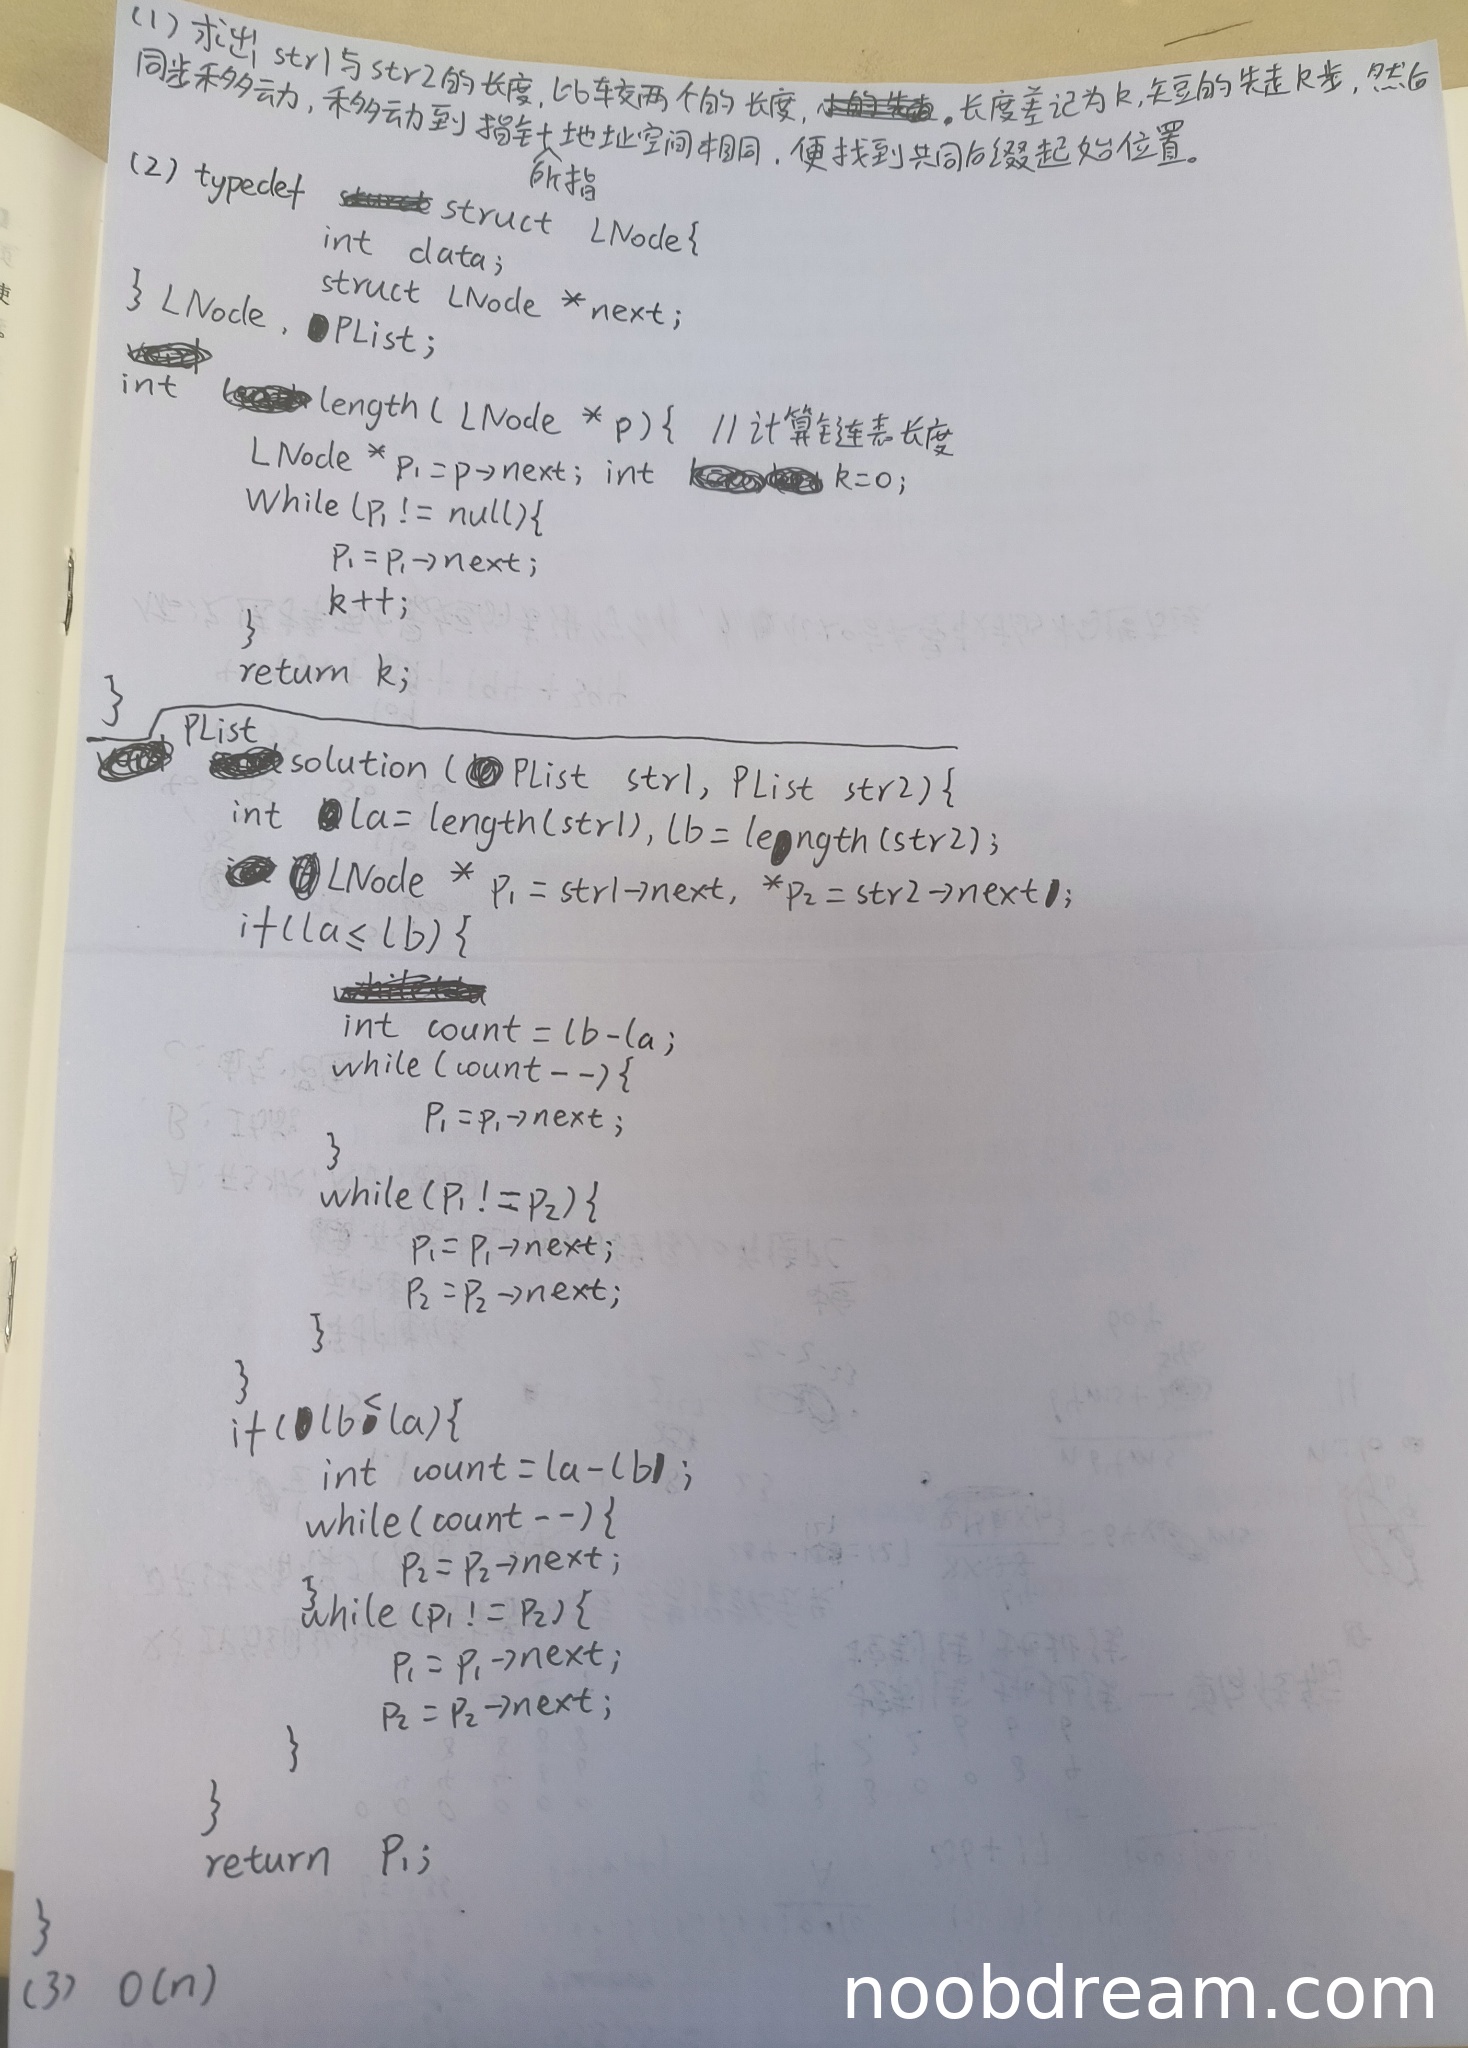 (1) 求出 str1与str2的长度,比较两个的长度,长度差记为k,短的先走k步,然后
同步移动,移动到指针所指地址空间相同,便找到共同后缀起始位置。
(2) typedef struct LNode{
int data;
struct LNode *next;
} LNode, PList;
int length( LNode * p){ //计算链表长度
LNode * p1=p->next; int k=0;
While (p1 != null){
p1=p1->next;
k++;
}
return k;
}
PList
solution ( PList str1, PList str2){
int la= length(str1), lb= length(str2);
LNode * p1 = str1->next, *p2=str2->next;
if(la≤lb){
int count=lb-la;
while(count--){
p1=p1->next;
}
while(p1!=p2){
p1=p1->next;
p2=p2->next;
}
}
if(lb≤la){
int count=la-lb;
while(count--){
p2=p2->next;
}
while(p1!=p2){
p1=p1->next;
p2=p2->next;
}
}
return p1;
}
(3) O(n)
noobdream.com